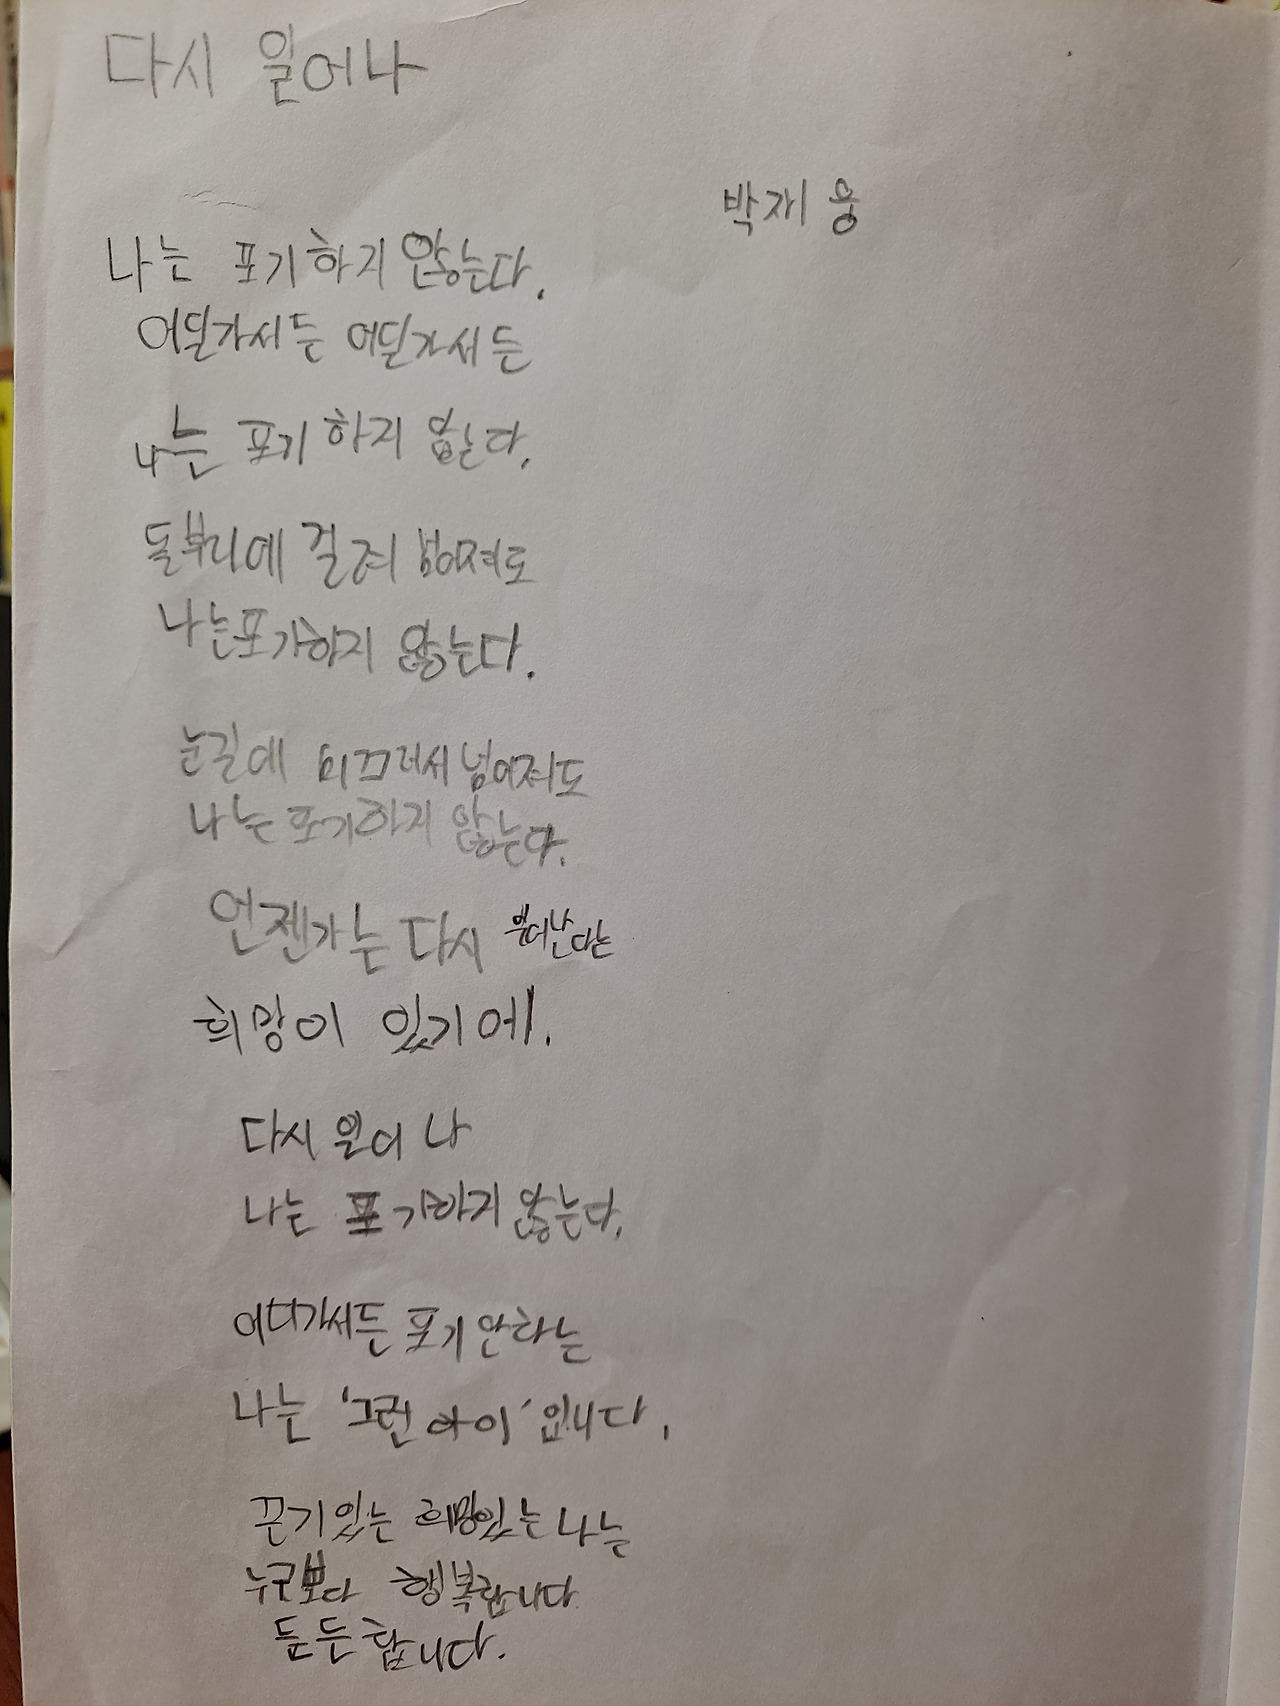 다시 일어나
박재웅
나는 포기하지 않는다.
어딜가서든 어딜가서든
나는 포기하지 않는다.
돌부리에 걸려 넘어져도
나는포기하지 않는다.
눈길에 미끄러서 넘어져도
나는 포기하지 않는다.
언젠가는 다시 일어난다는
희망이 있기에.
다시 일어나
나는 포기하지 않는다.
어디가서든 포기안하는
나는 '그런 아이' 입니다.
끈기있는 희망있는 나는
누구보다 행복합니다
든든합니다.